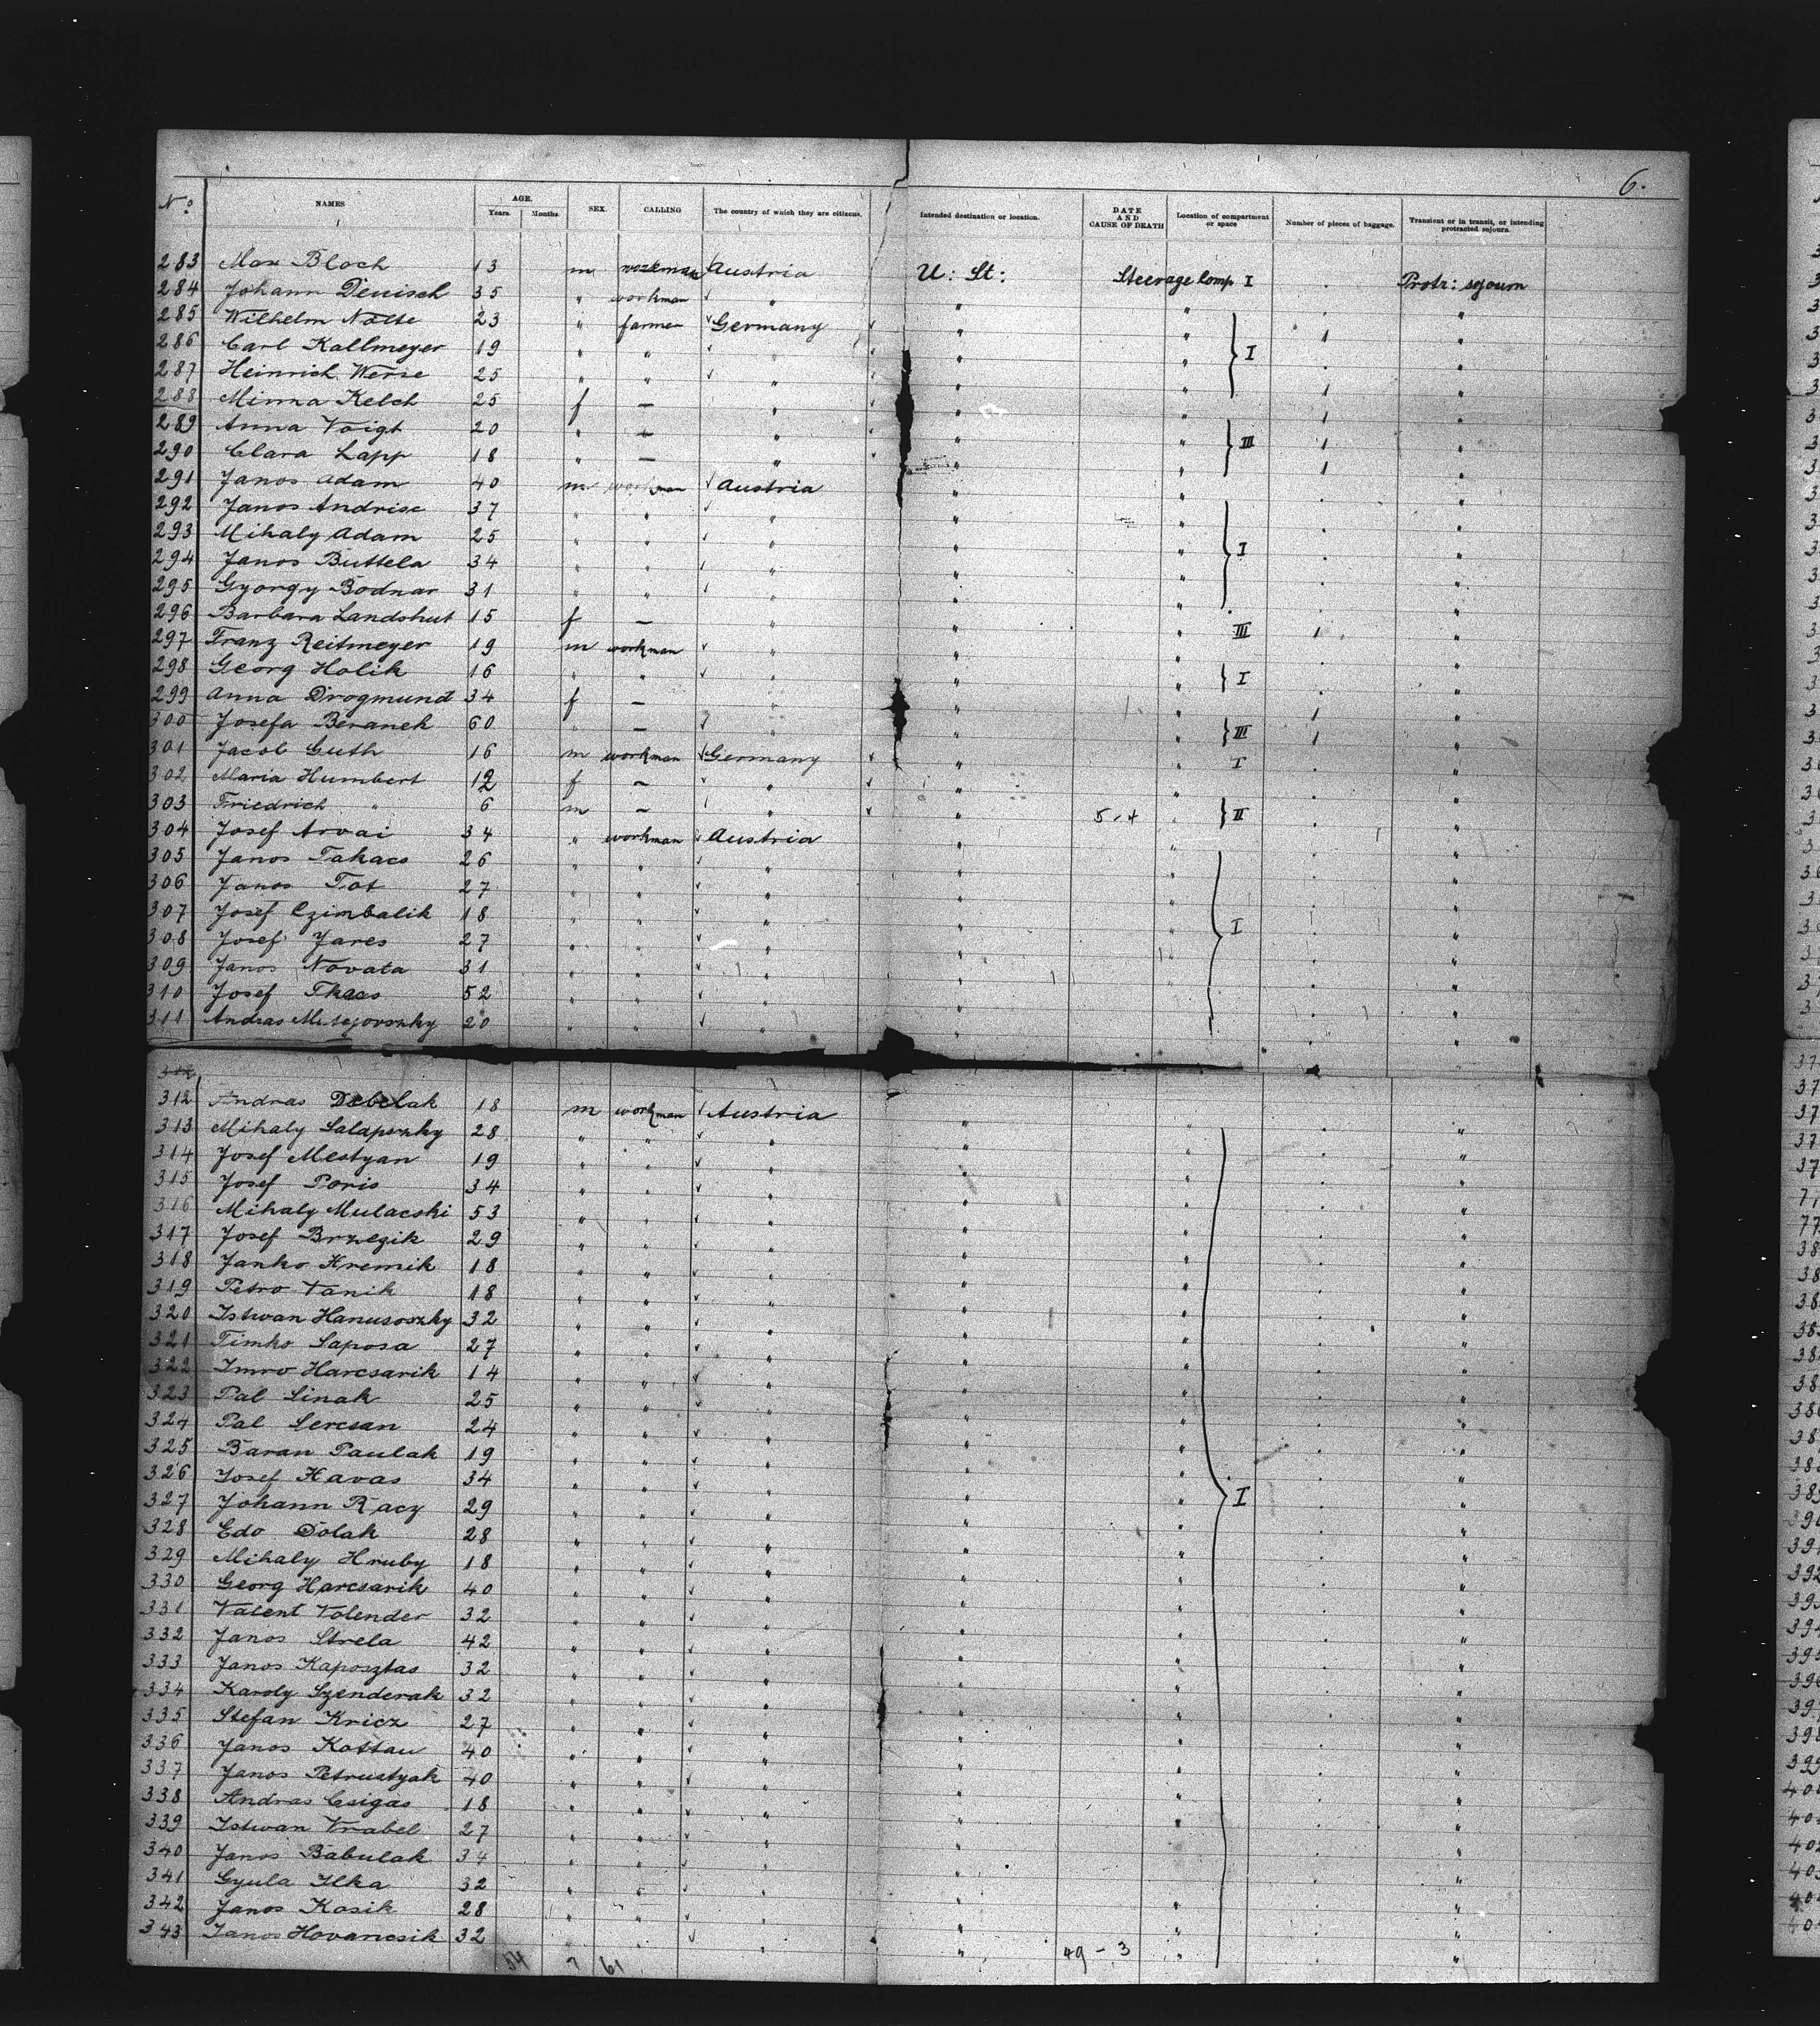 6.
No NAMES AGE. Years. Months. SEX. CALLING The country of which they are citizens. Intended destination or location. DATE AND CAUSE OF DEATH Location of compartment or space Number of pieces of baggage. Transient or in transit, or intending protracted sojourn.
283 Max Bloch 13 m workman Austria U: St: Steerage Comp I Protr: sojourn
284 Johann Deutsch 35 " workman " " " "
285 Wilhelm Nolte 23 " farmer Germany " " 1 "
286 Carl Kallmeyer 19 " " " " " I "
287 Heinrich Werse 25 " " " " " 1 "
288 Minna Kelch 25 f — " " " 1 "
289 Anna Voigt 20 " — " " " III 1 "
290 Clara Lapp 18 " — " " " 1 "
291 Janos Adam 40 m workman Austria " " "
292 Janos Andrisc 37 " " " " " "
293 Mihaly Adam 25 " " " " " I "
294 Janos Buttela 34 " " " " " "
295 Gyorgy Bodnar 31 " " " " " "
296 Barbara Landshut 15 f — " " " III 1 "
297 Franz Reitmeyer 19 m workman " " " "
298 Georg Holik 16 " " " " " I "
299 Anna Drogmund 34 f — " " " 1 "
300 Josefa Beranek 60 " — " " " III 1 "
301 Jacob Guth 16 m workman Germany " " I "
302 Maria Humbert 12 f — " " " "
303 Friedrich " 6 m — " " 5-4 " II "
304 Josef Arvai 34 " workman Austria " " "
305 Janos Takacs 26 " " " " " "
306 Janos Tot 27 " " " " " "
307 Josef Czimbalik 18 " " " " " I "
308 Josef Jares 27 " " " " " "
309 Janos Novata 31 " " " " " "
310 Josef Tkacs 52 " " " " " "
311 Andras 20 " " " " " "
312
312 Andras Debelak 18 m workman Austria " " "
313 Mihaly Salapszky 28 " " " " " "
314 Josef Mestyan 19 " " " " " "
315 Josef Poris 34 " " " " " "
316 Mihaly Mulacski 53 " " " " " "
317 Josef Brzezik 29 " " " " " "
318 Janko Kremik 18 " " " " " "
319 Petro Vanik 18 " " " " " "
320 Istwan Hanusoszky 32 " " " " " "
321 Timko Saposa 27 " " " " " "
322 Imro Harcsarik 14 " " " " " "
323 Pal Sinak 25 " " " " " "
324 Pal Sercsan 24 " " " " " "
325 Baran Paulak 19 " " " " " "
326 Josef Havas 34 " " " " " I "
327 Johann Racz 29 " " " " " "
328 Edo Dolak 28 " " " " " "
329 Mihaly Hruby 18 " " " " " "
330 Georg Harcsarik 40 " " " " " "
331 Valent Volender 32 " " " " " "
332 Janos Strela 42 " " " " " "
333 Janos Kaposztas 32 " " " " " "
334 Karoly Szenderak 32 " " " " " "
335 Stefan Kricz 27 " " " " " "
336 Janos Kottau 40 " " " " " "
337 Janos Petrustyak 40 " " " " " "
338 Andras Csigas 18 " " " " " "
339 Istwan Vrabel 27 " " " " " "
340 Janos Babulak 34 " " " " " "
341 Gyula Ilka 32 " " " " " "
342 Janos Kosik 28 " " " " " "
343 Janos Hovancsik 32 " " " " " "
54 7 61 49 - 3